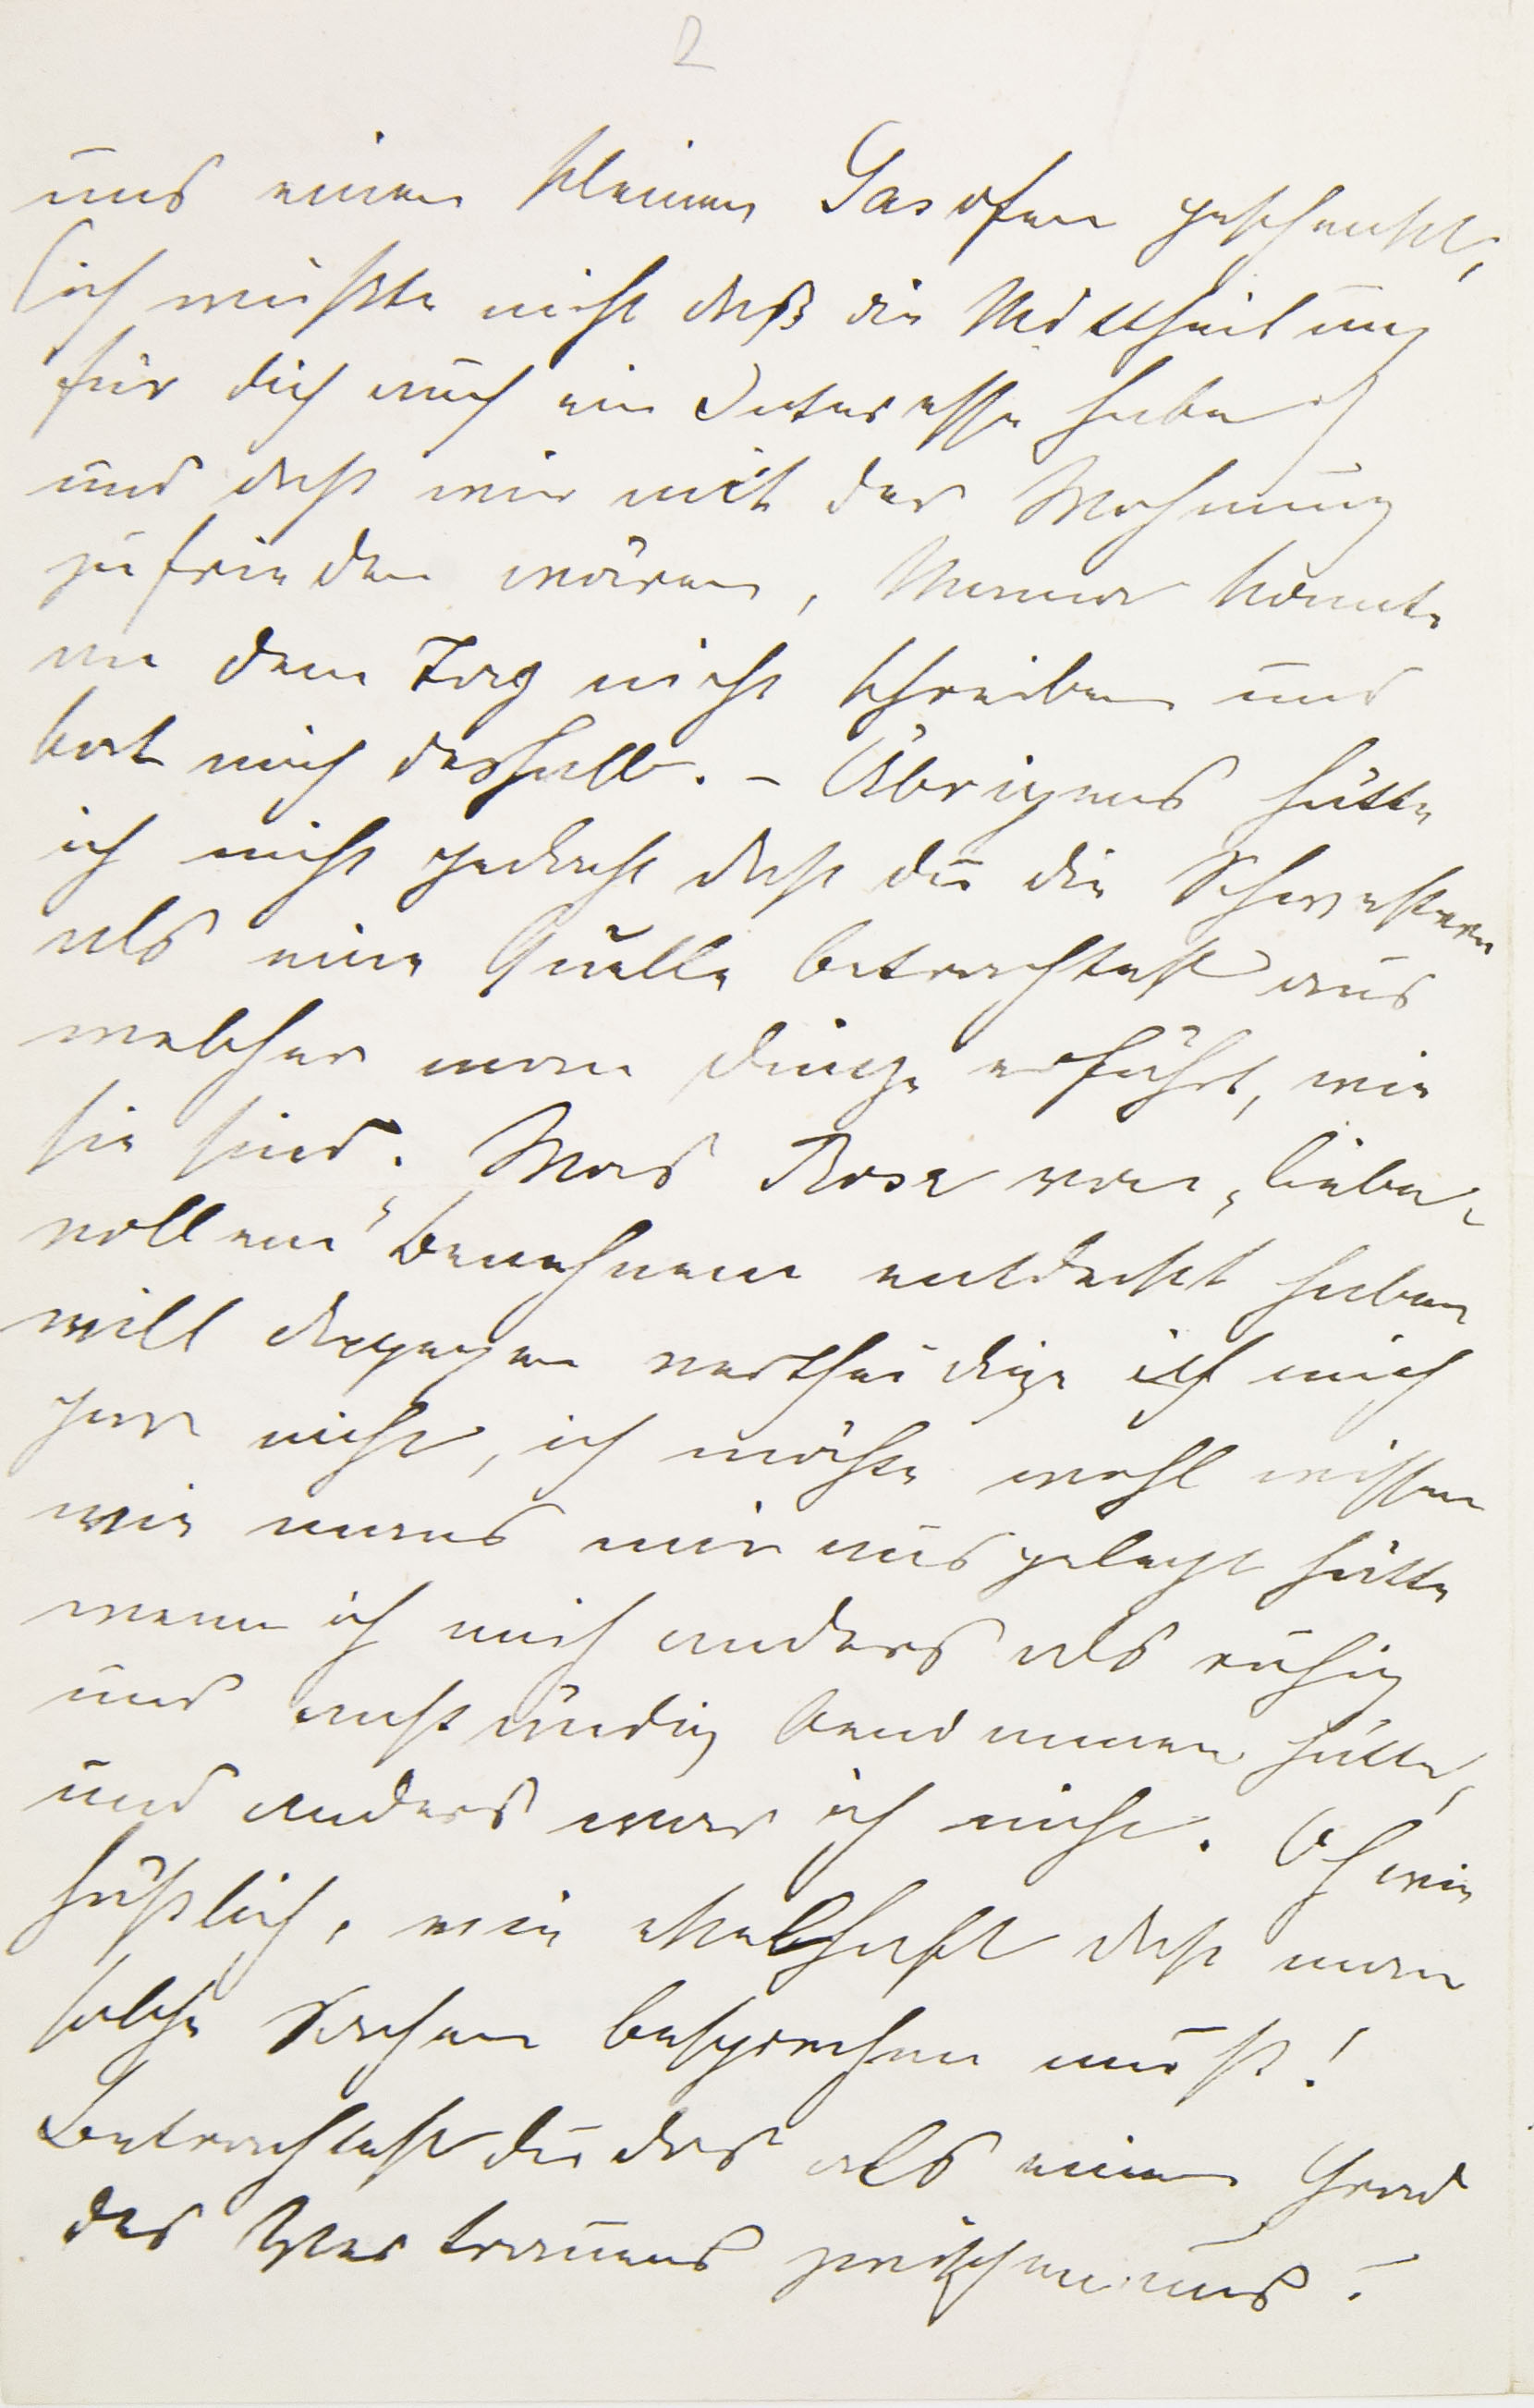 2
uns einen kleinen Gasofen geschenkt,
(ich wußte nicht daß die Mittheilung
für dich auch ein Interesse habe)
und daß wir mit der Wohnung
zufrieden wären, Mama konnte
an dem Tag nicht schreiben und
bat mich deshalb. – Übrigens hätte
ich nicht gedacht daß du die Schwestern
als eine Quelle betrachtest aus
welcher man Dinge erfährt, wie
sie sind. Was Rosa von „liebe-
vollem" Benehmen entdeckt haben
will dagegen vertheidige ich mich
gar nicht, ich möchte wohl wissen
wie mans mir ausgelegt hätte
wenn ich mich anders als ruhig
und anständig benommen hätte,
und anders war ich nicht. Oh wie
häßlich, wie ekelhaft daß man
solche Sachen besprechen muß!
Betrachtest du das als einen Grad
des Vertrauens zwischen uns?